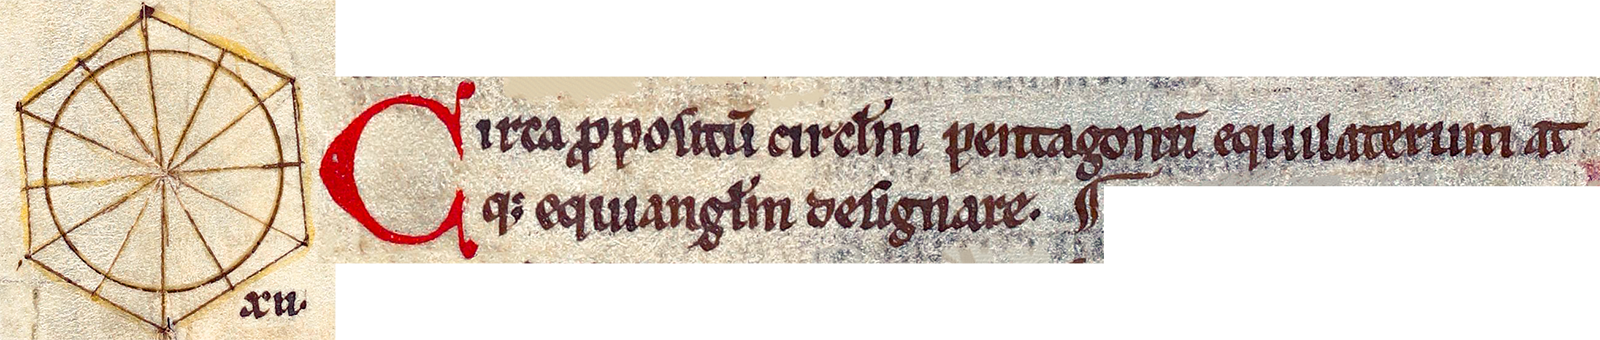 Circa ꝓpositū circłm pentagonū equilaterum at
qꝫ equianglm designare. ¶
xii.